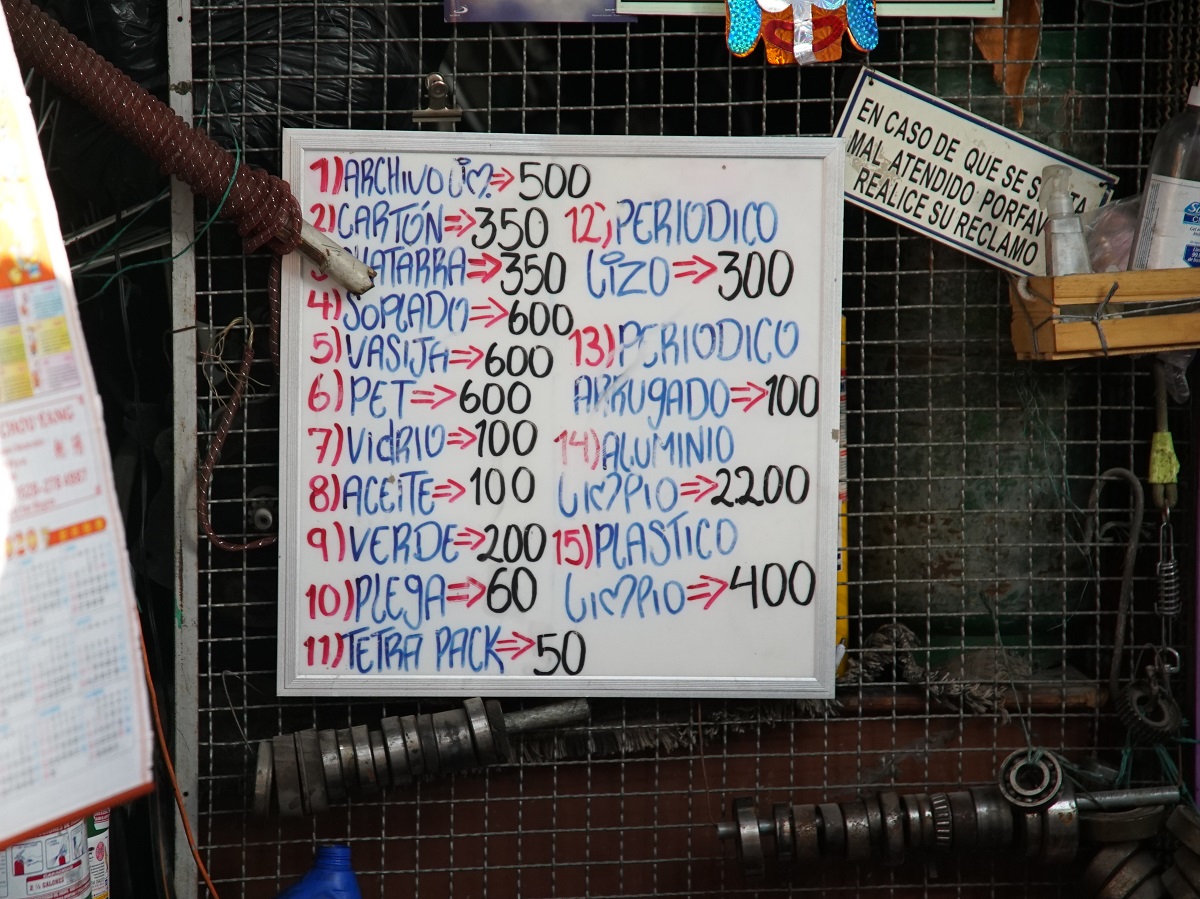 1) ARCHIVO LIM. ⇒ 500
2) CARTÓN ⇒ 350
ATARRA ⇒ 350
4) SOPLADO ⇒ 600
5) VASIJA ⇒ 600
6) PET ⇒ 600
7) VIDRIO ⇒ 100
8) ACEITE ⇒ 100
9) VERDE ⇒ 200
10) PLEGA ⇒ 60
11) TETRA PACK ⇒ 50
12) PERIODICO
LIZO ⇒ 300
13) PERIODICO
ARRUGADO ⇒ 100
14) ALUMINIO
LIMPIO ⇒ 2200
15) PLASTICO
LIMPIO ⇒ 400
EN CASO DE QUE SE S TA
MAL ATENDIDO PORFAV
REALICE SU RECLAMO